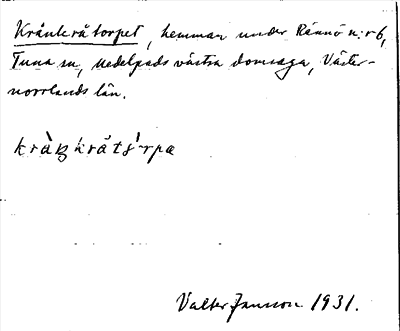 Kränkråtorpet, hemman under Rännö n:r 6,
Tuna sn, Medelpads västra domsaga, Väster-
norrlands län.
Valter Jansson 1931.